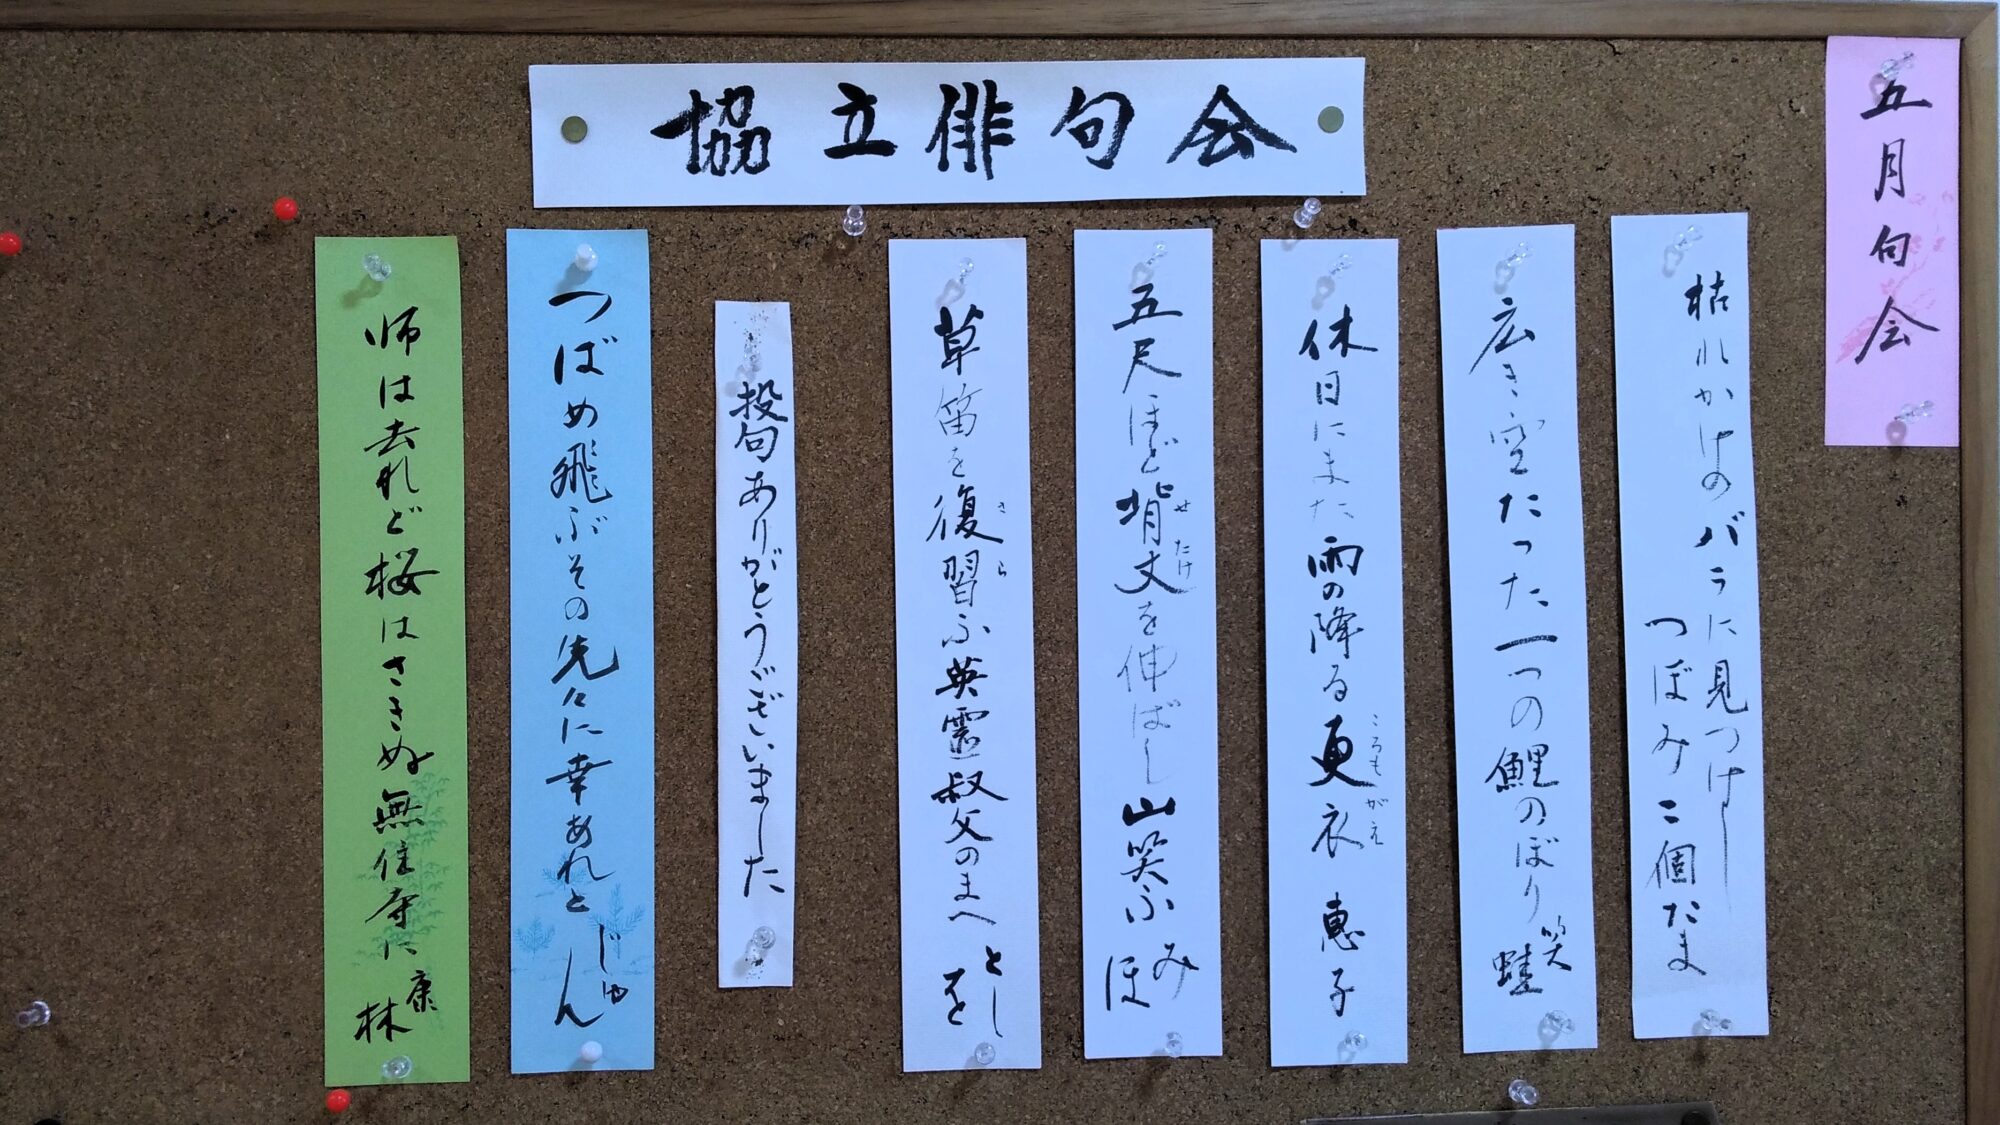 協立俳句会
五月句会
枯れかけのバラに見つけし
つぼみ二個 たま
広き空たった一つの鯉のぼり 笑蛙
休日にまた雨の降る更衣 恵子
ころもがえ
五尺ほど背丈を伸ばし山笑ふ みほ
せたけ
草笛を復習ふ英霊叔父のまへ としを
さら
投句ありがとうございました
つばめ飛ぶその先々に幸あれと じゅん
師は去れど桜はさきぬ無住寺に 康林